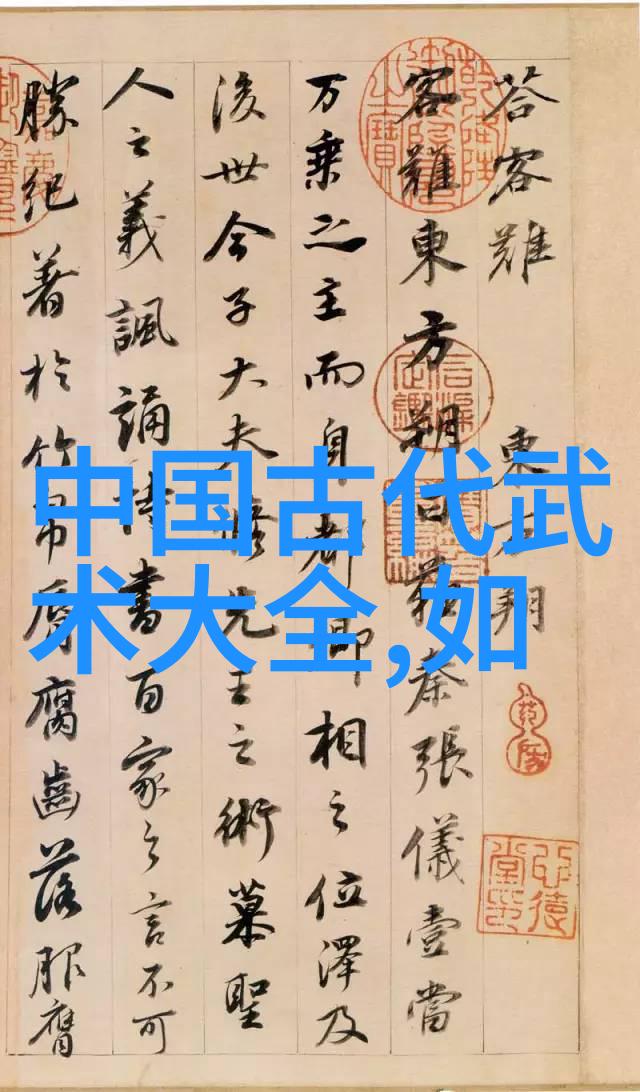 荅客難 東方朔
客難東方朔曰蘇秦張儀壹當
万乗之主而身都卿相之位澤及
後世今子大夫脩先王之術慕聖
人之義諷誦詩書百家之言不可
勝紀著於竹帛脣腐齒落服膺
中国古代武
术大全,如